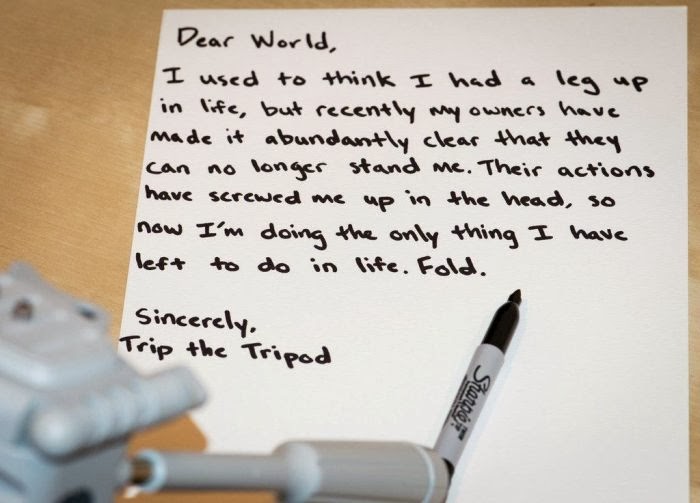 Dear World,
I used to think I had a leg up
in life, but recently my owners have
made it abundantly clear that they
can no longer stand me. Their actions
have screwed me up in the head, so
now I'm doing the only thing I have
left to do in life. Fold.
Sincerely,
Trip the Tripod
Sharpie